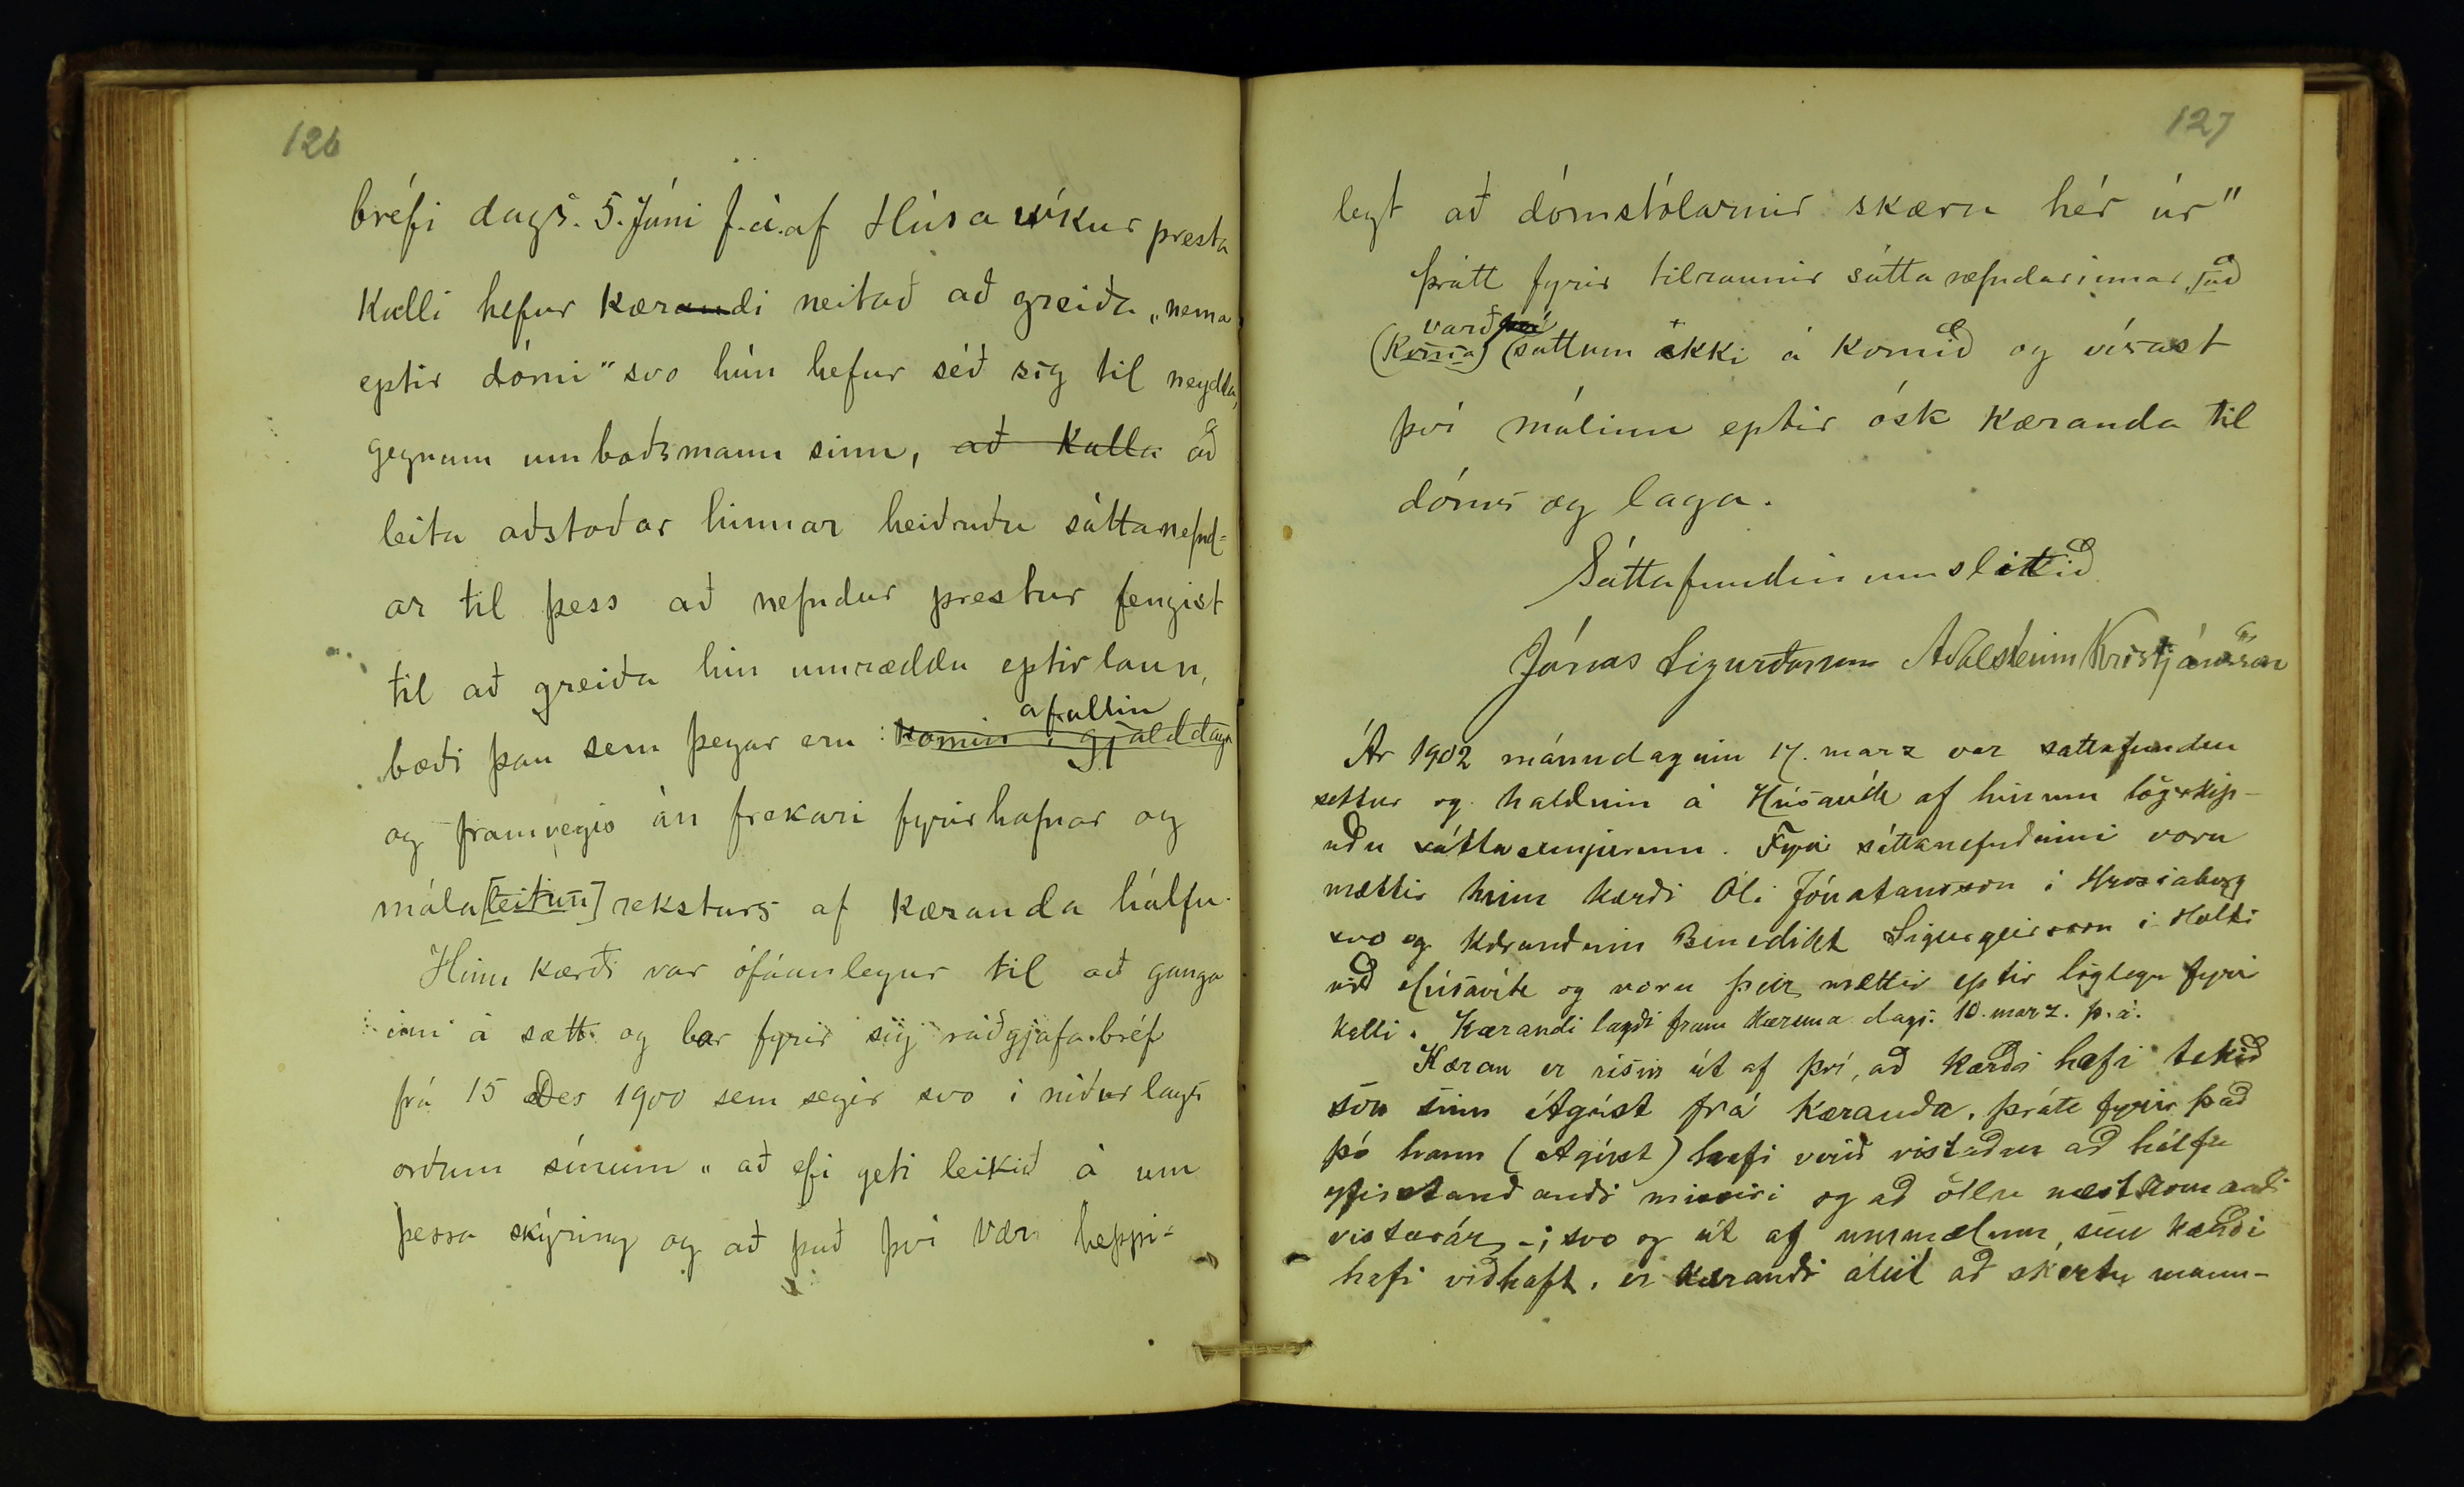 126
bréfi dags. 5. Júni f.á. af Húsavíkur presta
kalli hefur kærandi neitað að greiða „nema
eptir dómi" svo hún hefur séð sig til neydda,
gegnum umboðsmann sinn, að kalla að
leita aðstoðar hinnar heiðruðu sáttanefnd=
ar til þess að nefndur prestur fengist
til að greiða hin umræddu eptirlaun,
afallin
bæði þau sem þegar eru komin i gjalddaga
og framvegis án frekari fyrirhafnar og
mála[leitun] reksturs af kæranda hálfu.
Hinn kærði var ófáanlegur til að ganga
inn á sætt og bar fyrir sig ráðgjafabréf
frá 15 Des 1900 sem segir svo i niðurlags
orðum sínum „ að efi geti leikið á um
þessa skýring og að það því væri heppi=
127
legt að dómstólarnir skæru hér úr"
Þrátt fyrir tilraunir sáttanefndarinnar, að
varð því
(koma) sáttum ekki á komið og vísast
því málinu eptir ósk kæranda til
dóms og laga.
Sáttafundinum slitið
Jónas Sigurðsson Aðalsteinn Kristjánsson
Ár 1902 mánudaginn 17. marz var sáttafundur
settur og haldinn á Húsavík af hinum lögskip-
uðu sáttasemjurum. Fyrir sáttanefndinni voru
mættir hinn kærði Óli Jónatansson i
svo og kærandinn Benedikt Sigurgeirsson i Holti
við Húsavík og voru þeir mættir eptir löglegu fyrir
kalli. Kærandi lagði fram kæruna dags. 10. marz. þ.á.
Kæran er risin út af því, að kærði hafi tekið
son sinn Ágúst frá kæranda, þrátt fyrir það
þó hann (Ágúst) hafi verið vistaður að hálfu
yfirstandandi misseiri og að öllu næstkomandi
vistarár -; svo og út af ummælum, sem kærði
hafi viðhaft, er kærandi áleit að skertu mann-